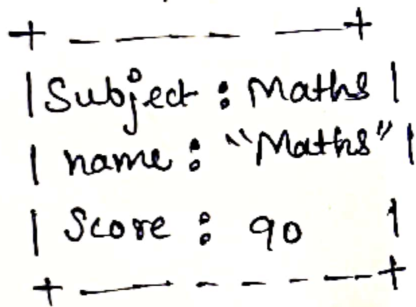 + - - - - - +
| Subject : Maths |
| name : "Maths" |
| Score : 90 |
+ - - - - - - +